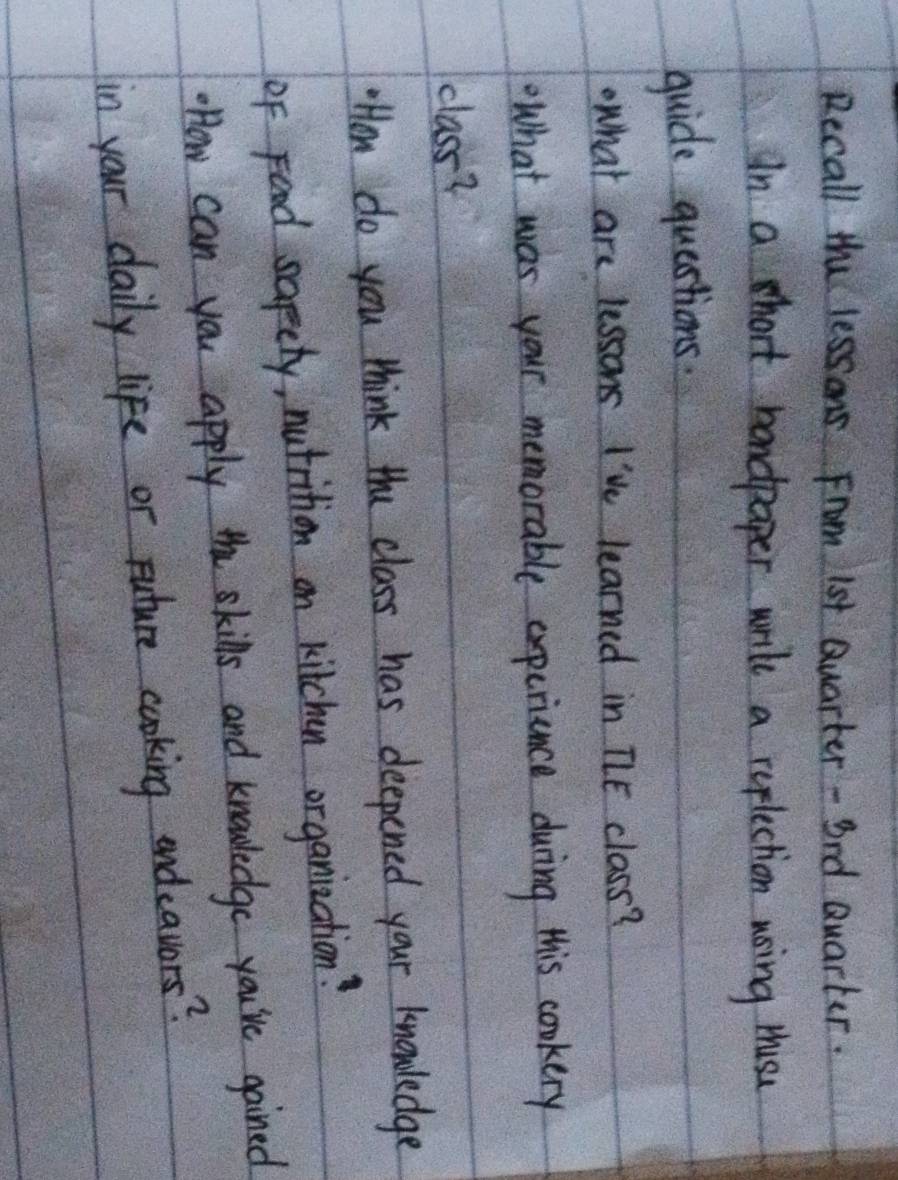 Recall the lessons From 1st Quarter - 3rd Quarter.
In a short bondpaper write a reflection using these
guide questions.
•What are lessons I've learned in TLE class?
•What was your memorable experience during this cookery
class?
•How do you think the class has deepened your knowledge
OF Food safety, nutrition on kitchen organization?
•How can you apply the skills and knowledge you've gained
in your daily life or Future cooking endeavors?